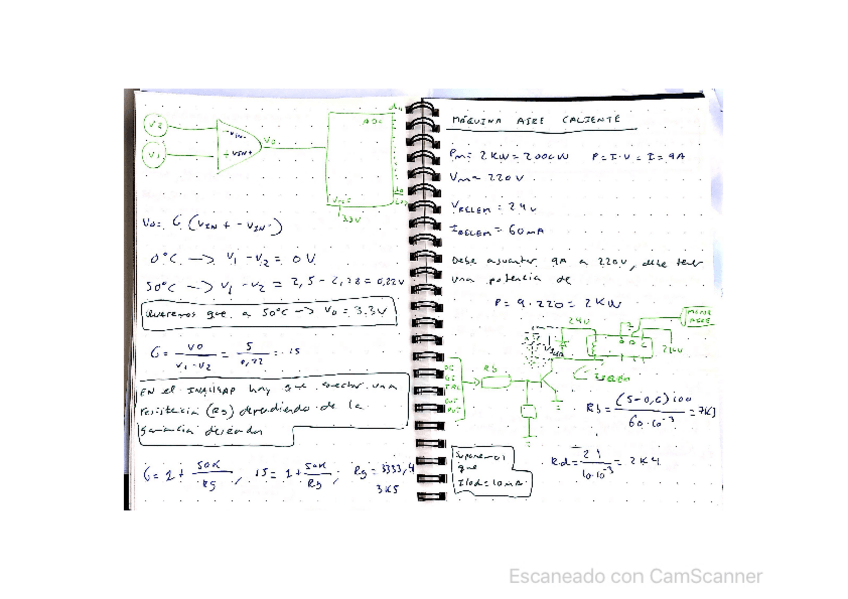 V2
V1
VIN-
VIN+
Vo
ADC
3.3V
Vo = G (VIN+ - VIN-)
0°C → V1 - V2 = 0 V
50°C → V1 - V2 = 2,5 - 2,28 = 0,22V
Queremos que a 50°C → Vo = 3.3V
G = Vo / (V1 - V2) = 5 / 0,22 = 15
EN el hay que conectar una
resistencia (Rg) dependiendo de la
ganancia deseada
G = 1 + 50K / Rg, 15 = 1 + 50K / Rg;
3K5
MÁQUINA AIRE CALIENTE
Pm = 2KW = 2000W P = I·V = I = 9A
Vm = 220V
= 24V
= 60mA
Debe aguantar 9A a 220V, debe tener
una potencia de
P = 9·220 = 2KW
24V
Rb
Rb = (5-0,6)100 / 60·10⁻³ = 7K3
Suponemos
que
Iled = 10mA
10·10⁻³ = 2K4
Escaneado con CamScanner